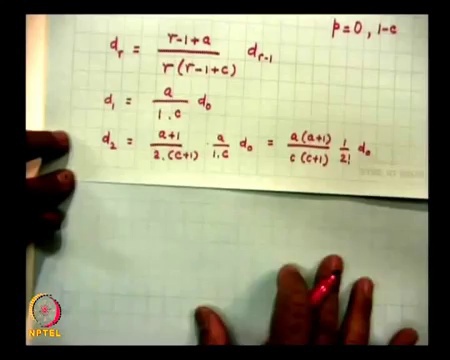 p=0, 1-c
d_r = \frac{r-1+a}{r(r-1+c)} d_{r-1}
d_1 = \frac{a}{1.c} d_0
d_2 = \frac{a+1}{2.(c+1)} \cdot \frac{a}{1.c} d_0 = \frac{a(a+1)}{c(c+1)} \frac{1}{2!} d_0
NPTEL